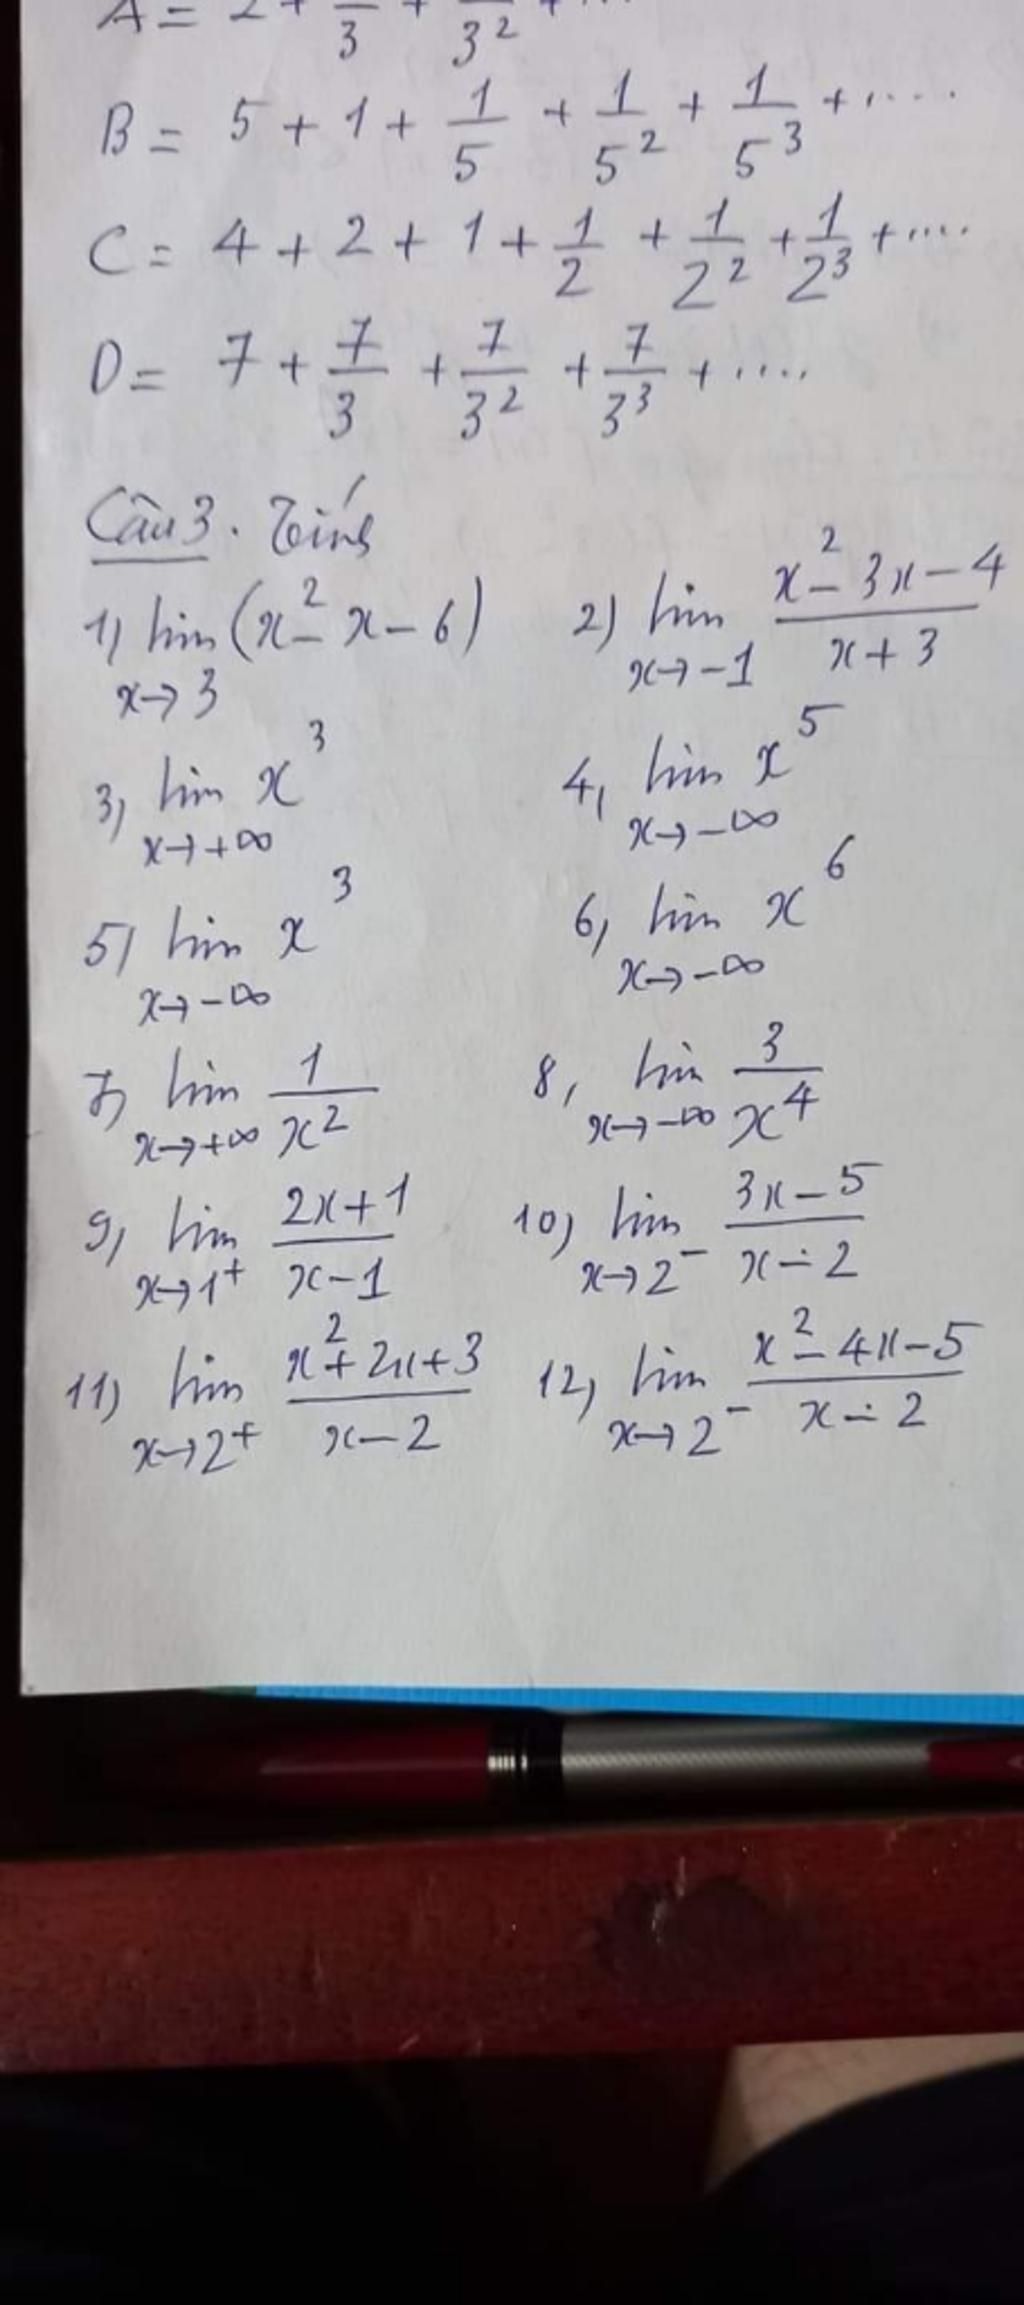 A = 2 + /3 + /3² + ...
B = 5 + 1 + 1/5 + 1/5² + 1/5³ + .....
C = 4 + 2 + 1 + 1/2 + 1/2² + 1/2³ + ....
D = 7 + 7/3 + 7/3² + 7/3³ + ....
Câu 3. Tính
1) lim x→3 (x² - x - 6) 2) lim x→-1 (x² - 3x - 4)/(x + 3)
3) lim x→+∞ x³ 4, lim x→-∞ x⁵
5) lim x→-∞ x³ 6, lim x→-∞ x⁶
7) lim x→+∞ 1/x² 8, lim x→-∞ 3/x⁴
9, lim x→1⁺ (2x + 1)/(x - 1) 10) lim x→2⁻ (3x - 5)/(x - 2)
11) lim x→2⁺ (x² + 2x + 3)/(x - 2) 12, lim x→2⁻ (x² - 4x - 5)/(x - 2)